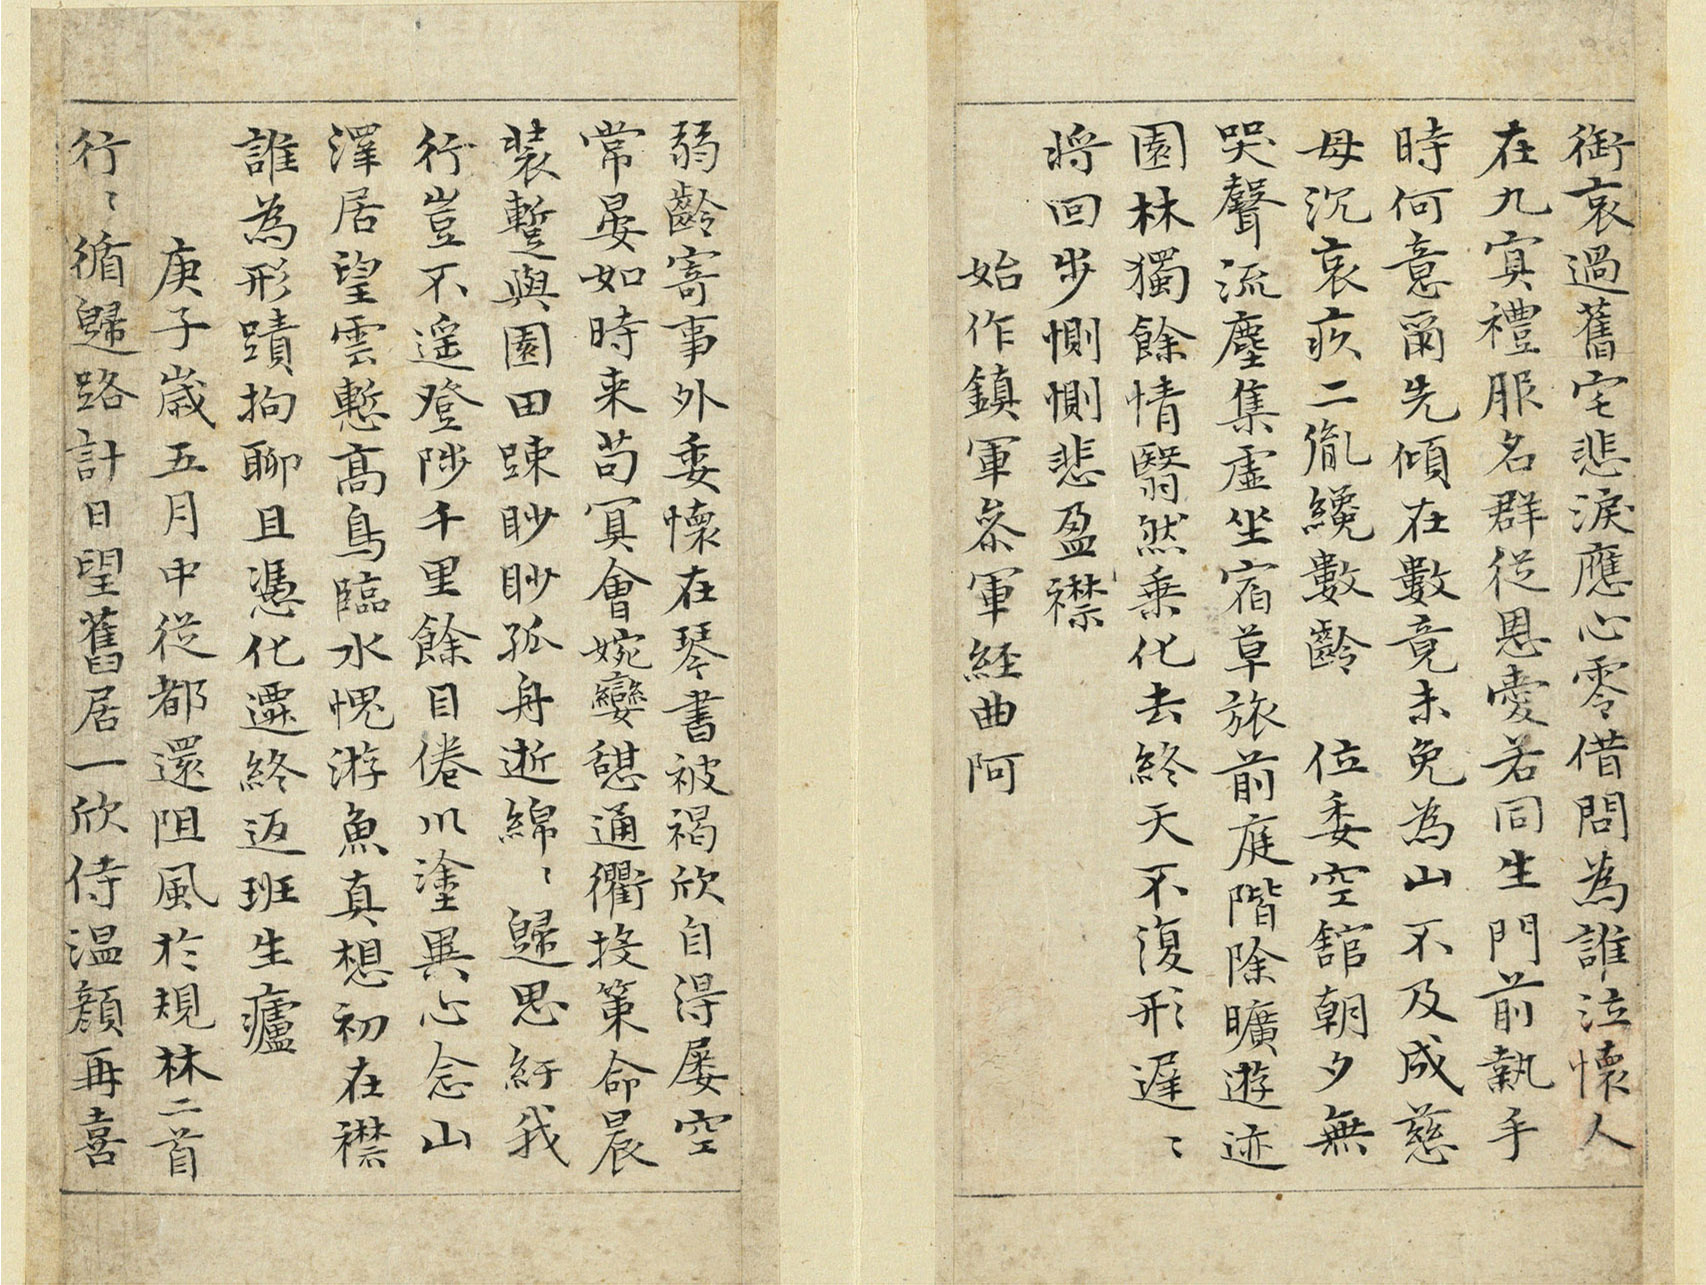 銜哀過舊宅悲淚應心零借問為誰泣懷人
在九㝠禮服名群從恩愛若同生門前執手
時何意爾先傾在數竟未免為山不及成慈
母沉哀疚二胤纔數齡 位委空舘朝夕無
哭聲流塵集虛坐宿草旅前庭階除曠遊迹
園林獨餘情翳然乗化去終天不復形遲〻
将回步惻惻悲盈襟
始作鎮軍叅軍經曲阿
弱齡寄事外委懷在琴書被褐欣自得屡空
常晏如時来苟㝠會婉孌憇通衢投策命晨
裝蹔與園田踈眇眇孤舟逝綿〻歸思紆我
行豈不遥登陟千里餘目倦川塗異心念山
澤居望雲慙髙鳥臨水愧游魚真想初在襟
誰為形蹟拘聊且憑化遷終返班生廬
庚子歲五月中從都還阻風於規林二首
行〻循歸路計日望舊居一欣侍温顏再喜